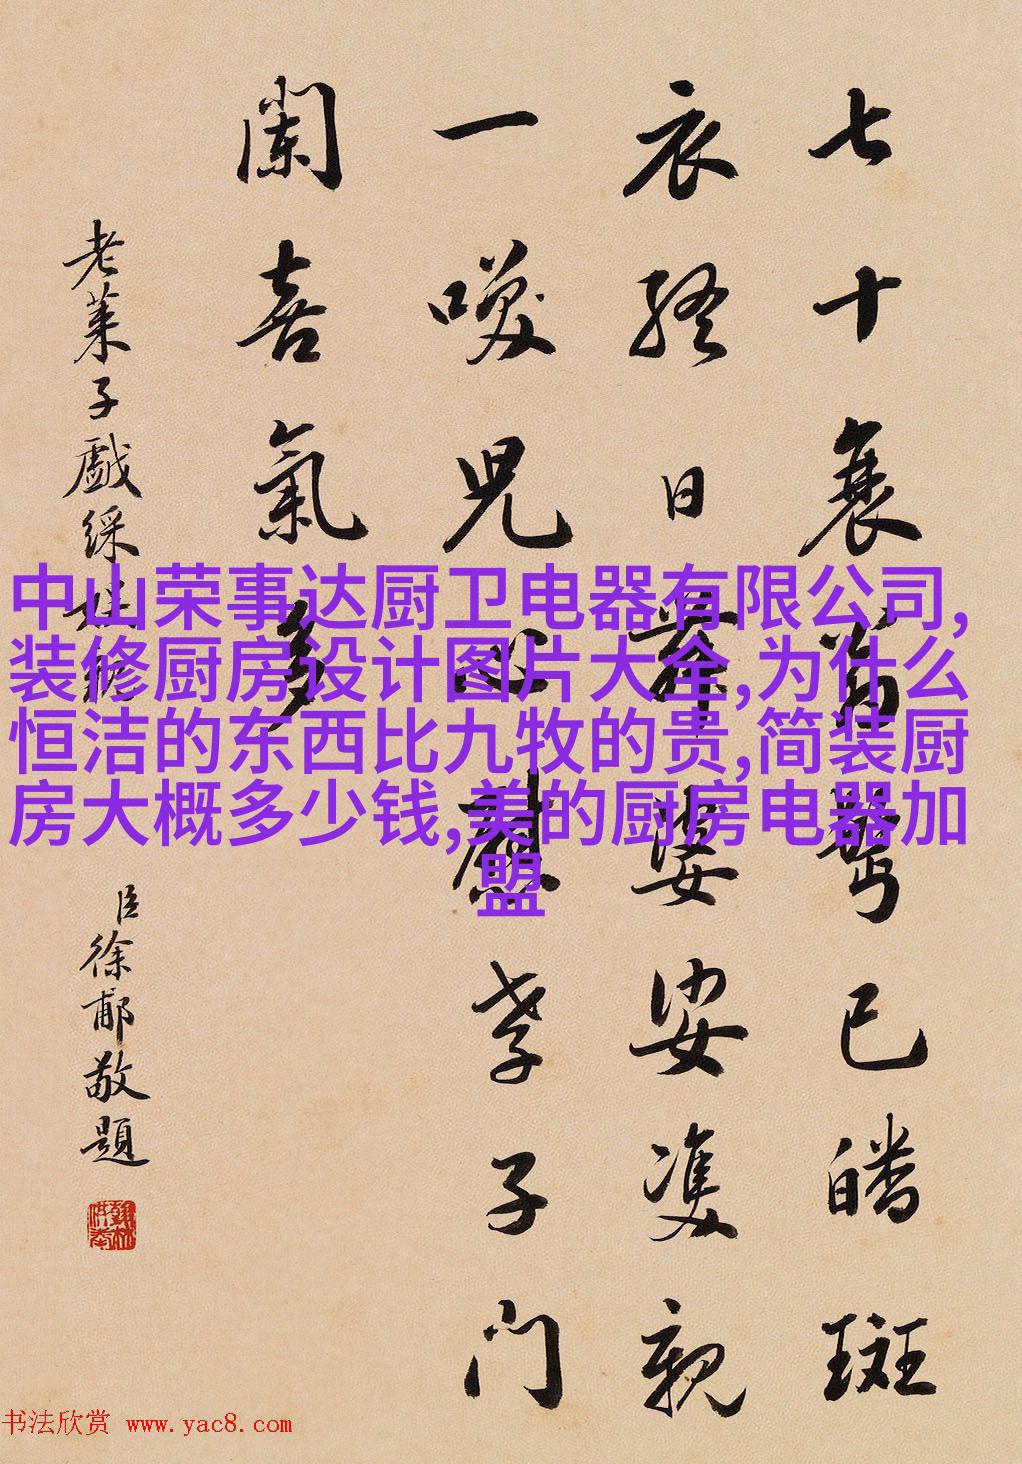 七十衰翁鬢已皤斑
衣終日舞婆娑雙親
一咲兒心慰孝子門
闌喜氣多
老萊子戲綵娛親
臣徐郙敬題
中山荣事达厨卫电器有限公司,
装修厨房设计图片大全,为什么
恒洁的东西比九牧的贵,简装厨
房大概多少钱,美的厨房电器加
盟
书法欣赏 www.yac8.com